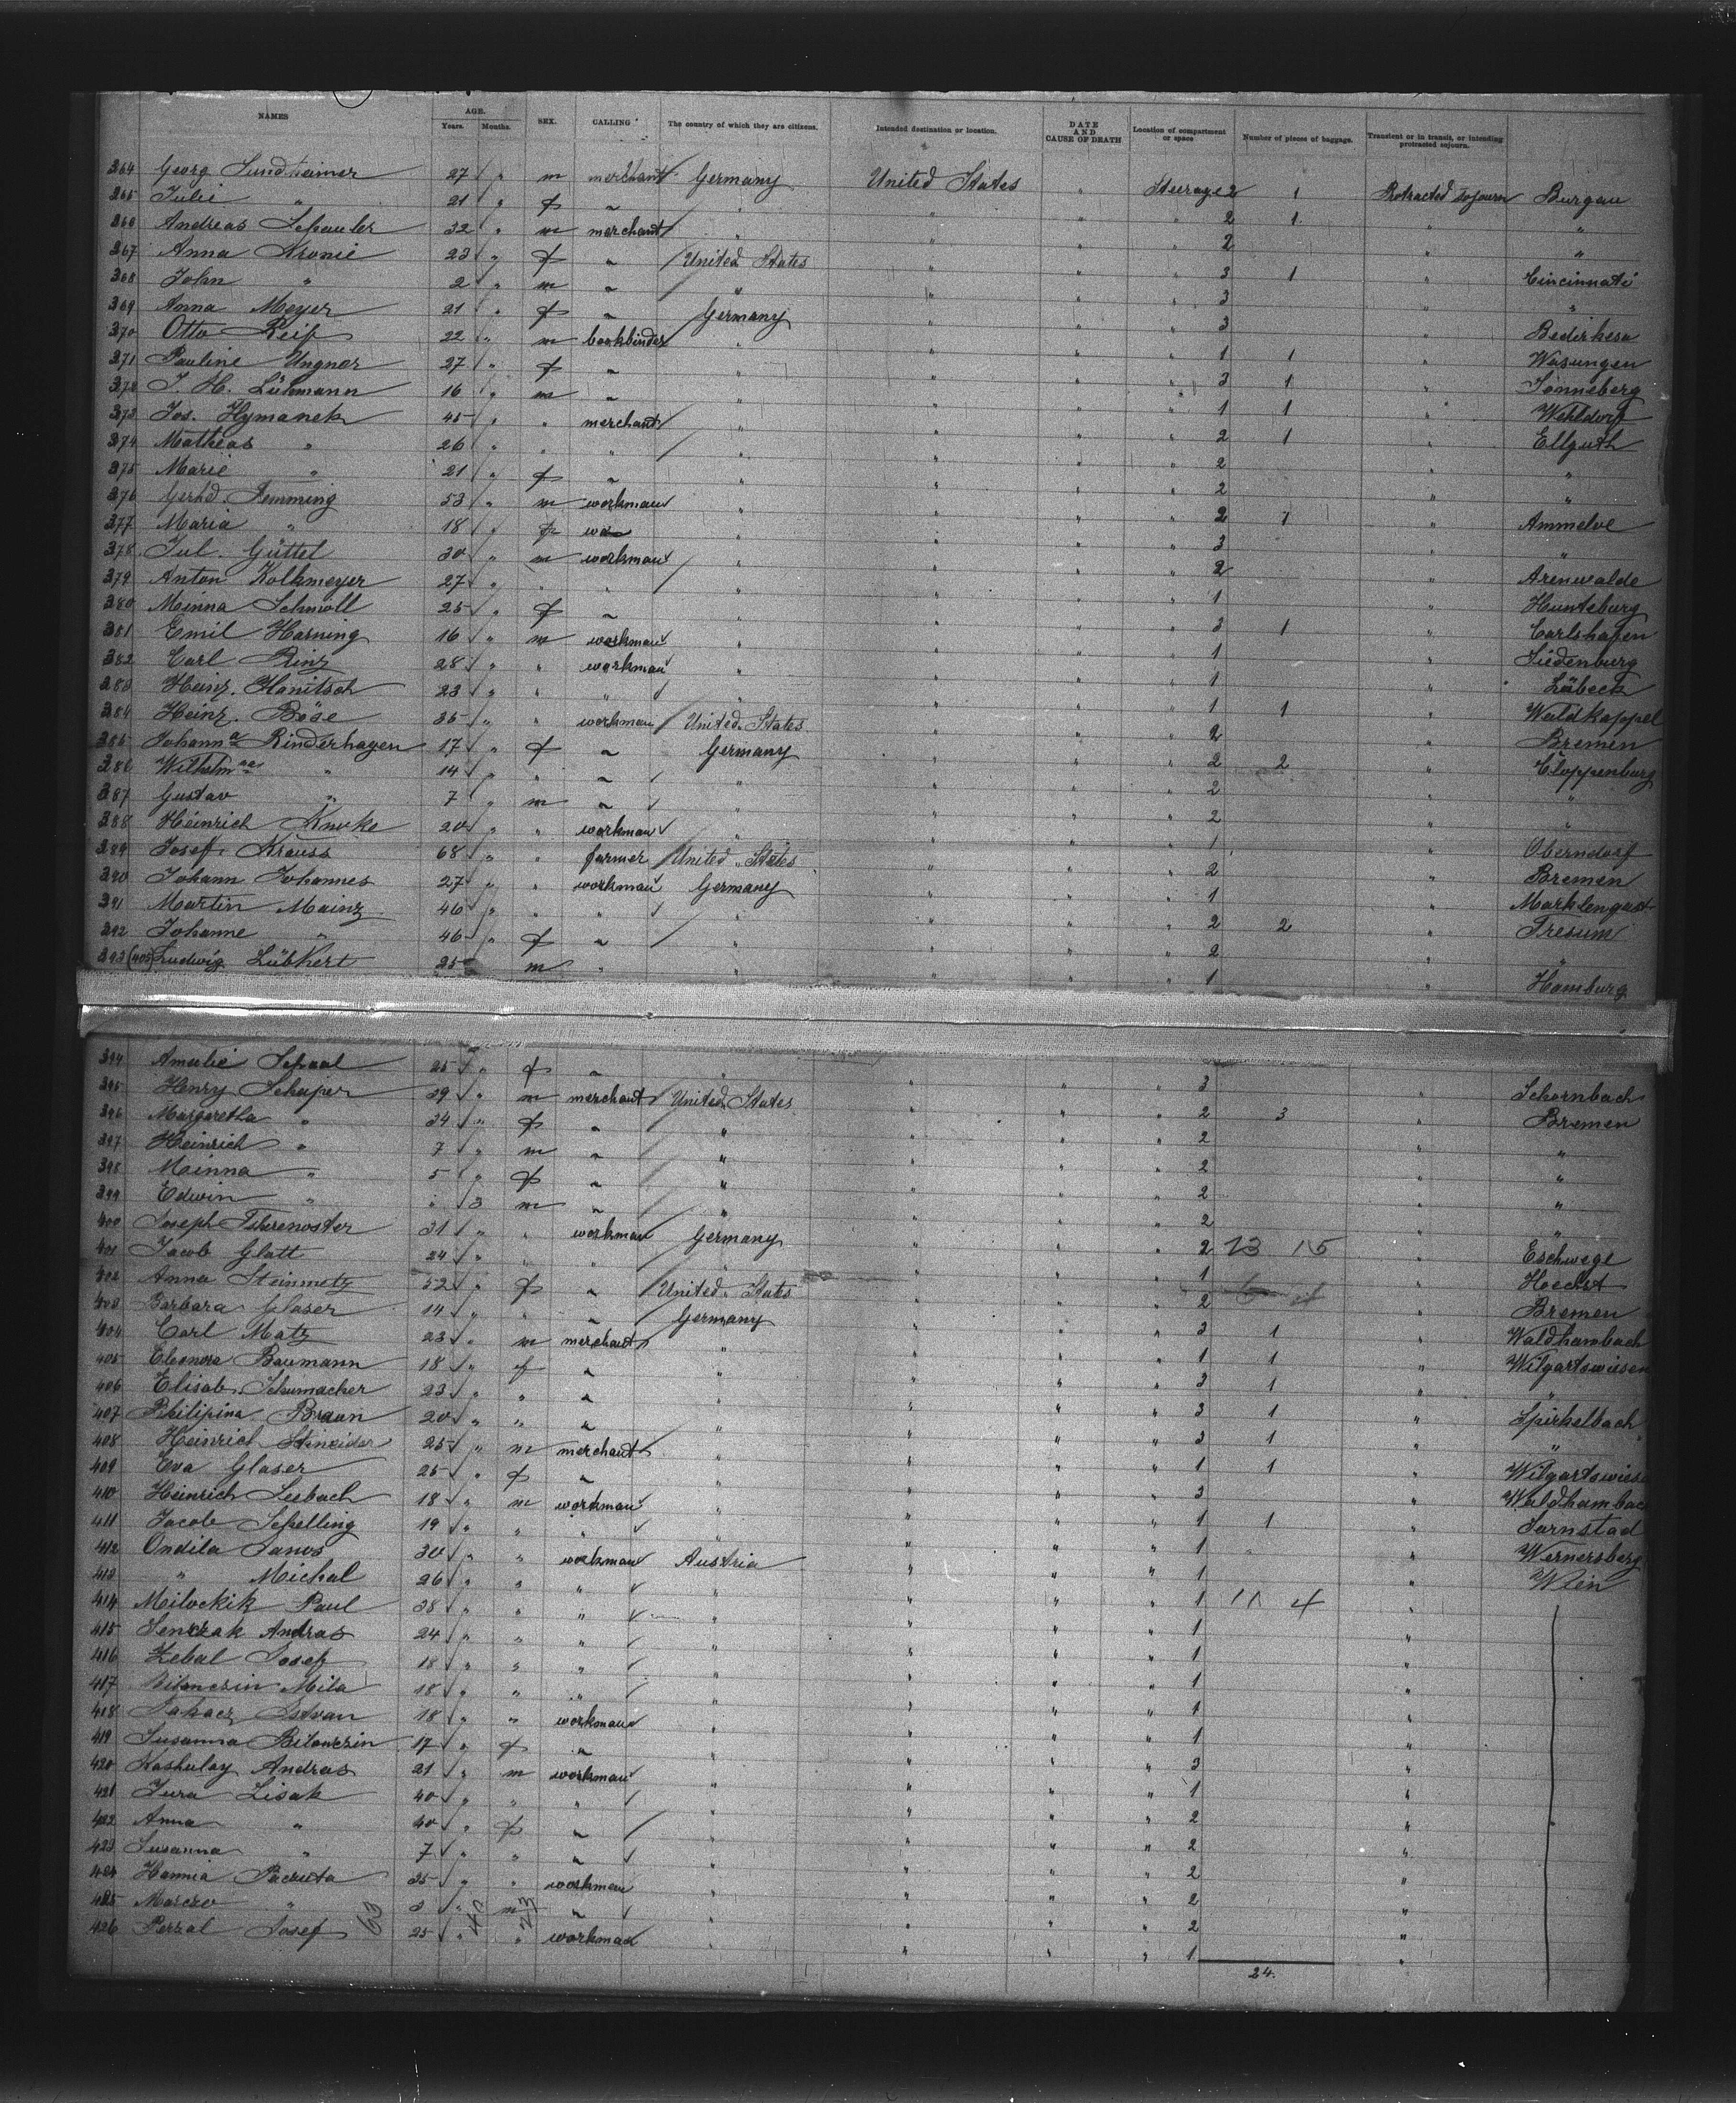 NAMES AGE. Years. Months. SEX. CALLING The country of which they are citizens. Intended destination or location. DATE AND CAUSE OF DEATH Location of compartment or space Number of pieces of baggage. Transient or in transit, or intending protracted sojourn.
364 Georg Sundheimer 27 " m merchant Germany United States " Steerage 2 1 Protracted sojourn Burgau
365 Julie " 21 " f " " " " " 2 1 " "
366 Andreas Schauler 32 " m merchant " " " " 2 " "
367 Anna Kronie 23 " f " United States " " " 3 1 " Cincinnati
368 John " 2 " m " " " " " 3 " "
369 Anna Meyer 21 " f " Germany " " " 3 " Bedirkesa
370 Otto Reif 22 " m bookbinder " " " " 1 1 " Wasungen
371 Pauline Ungnor 27 " f " " " " " 3 1 " Sonneberg
372 J. H. Lühmann 16 " m " " " " " 1 1 " Wehldorf
373 Jos. Hymanek 45 " " merchant " " " " 2 1 " Ellguth
374 Mathias " 26 " " " " " " " 2 " "
375 Marie " 21 " f " " " " " 2 " "
376 Gerhd. Temming 53 " m workman " " " " 2 1 " Ammelve
377 Maria " 18 " f " " " " 3 " "
378 Jul. Güttel 30 " m workman " " " " 2 " Arenwalde
379 Anton Kolkmeyer 27 " " " " " " " 1 " Hunteburg
380 Minna Schmoll 25 " f " " " " " 3 1 " Carlshafen
381 Emil Harning 16 " m workman " " " " 1 " Siedenburg
382 Carl Rinz 28 " " workman " " " " 1 " Lübeck
383 Heinr. Hanitsch 23 " " " " " " " 1 1 " Waldkappel
384 Heinr. Böse 35 " " workman United States " " " 2 " Bremen
385 Johanna Rinderhagen 17 " f " Germany " " " 2 2 " Cloppenburg
386 Wilhelmne " 14 " " " " " " " 2 " "
387 Gustav " 7 " m " " " " " 2 " "
388 Heinrich Knoke 20 " " workman " " " " 1 " Oberndorf
389 Josef Krauss 68 " " farmer United States " " " 2 " Bremen
390 Johann Johannes 27 " " workman Germany " " " 1 " Marklengast
391 Martin Mainz 46 " " " " " " " 2 2 " Tresum
392 Johanne " 46 " f " " " " " 2 " "
393 (405) Ludwig Lübkert 25 m " " " " 1 " Hamburg
394 Amalie Schaal 25 " f " " " " " 3 " Schornbach
395 Henry Schaper 29 " m merchant United States " " " 2 3 " Bremen
396 Margaretha " 24 " f " " " " " 2 " "
397 Heinrich " 7 " m " " " " " 2 " "
398 Minna " 5 " f " " " " " 2 " "
399 Edwin " " 3 m " " " " " 2 " "
400 Joseph 31 " " workman Germany " " " 2 13 15 " Eschwege
401 Jacob Glatt 24 " " " " " " " 1 " Hoechst
402 Anna Steinmetz 52 " f " United States " " " 2 " Bremen
403 Barbara Glaser 14 " " " Germany " " " 3 1 " Waldhambach
404 Carl Matz 23 " m merchant " " " " 1 1 " Wilgartswiesen
405 Eleonora Baumann 18 " f " " " " " 3 1 " "
406 Elisab. Schumacher 23 " " " " " " " 3 1 " Spirkelbach
407 Philipina Braun 20 " " " " " " " 3 1 " "
408 Heinrich 25 " m merchant " " " " 1 1 " Wilgartswies
409 Eva Glaser 25 " f " " " " " 3 " Waldhambac
410 Heinrich Seebach 18 " m workman " " " " 1 1 " Sarnstad
411 Jacob Schelling 19 " " " " " " " 1 " Wernersberg
412 Ondila Janos 30 " " workman Austria " " " 1 " Wien
413 " Michal 26 " " " " " " " 1 11 4 "
414 Milockik Paul 38 " " " " " " " 1 "
415 Senczak Andras 24 " " " " " " " 1 "
416 Zebal Josef 18 " " " " " " " 1 "
417 Bilonczin Mila 18 " " " " " " " 1 "
418 Takacz Istvan 18 " " workman " " " " 1 "
419 Susanna Bilonczin 17 " f " " " " " 3 "
420 Kashulay Andras 21 " m workman " " " " 1 "
421 Jura Lisak 40 " " " " " " " 2 "
422 Anna " 40 " f " " " " " 2 "
423 Susanna " 7 " " " " " " " 2 "
424 Hannia Pacuta 35 " " workman " " " " 2 "
425 Marczo " 3 " m " " " " " 2 "
426 Perzal Josef 25 " " workman " " " " 1 "
63 40 23
24.